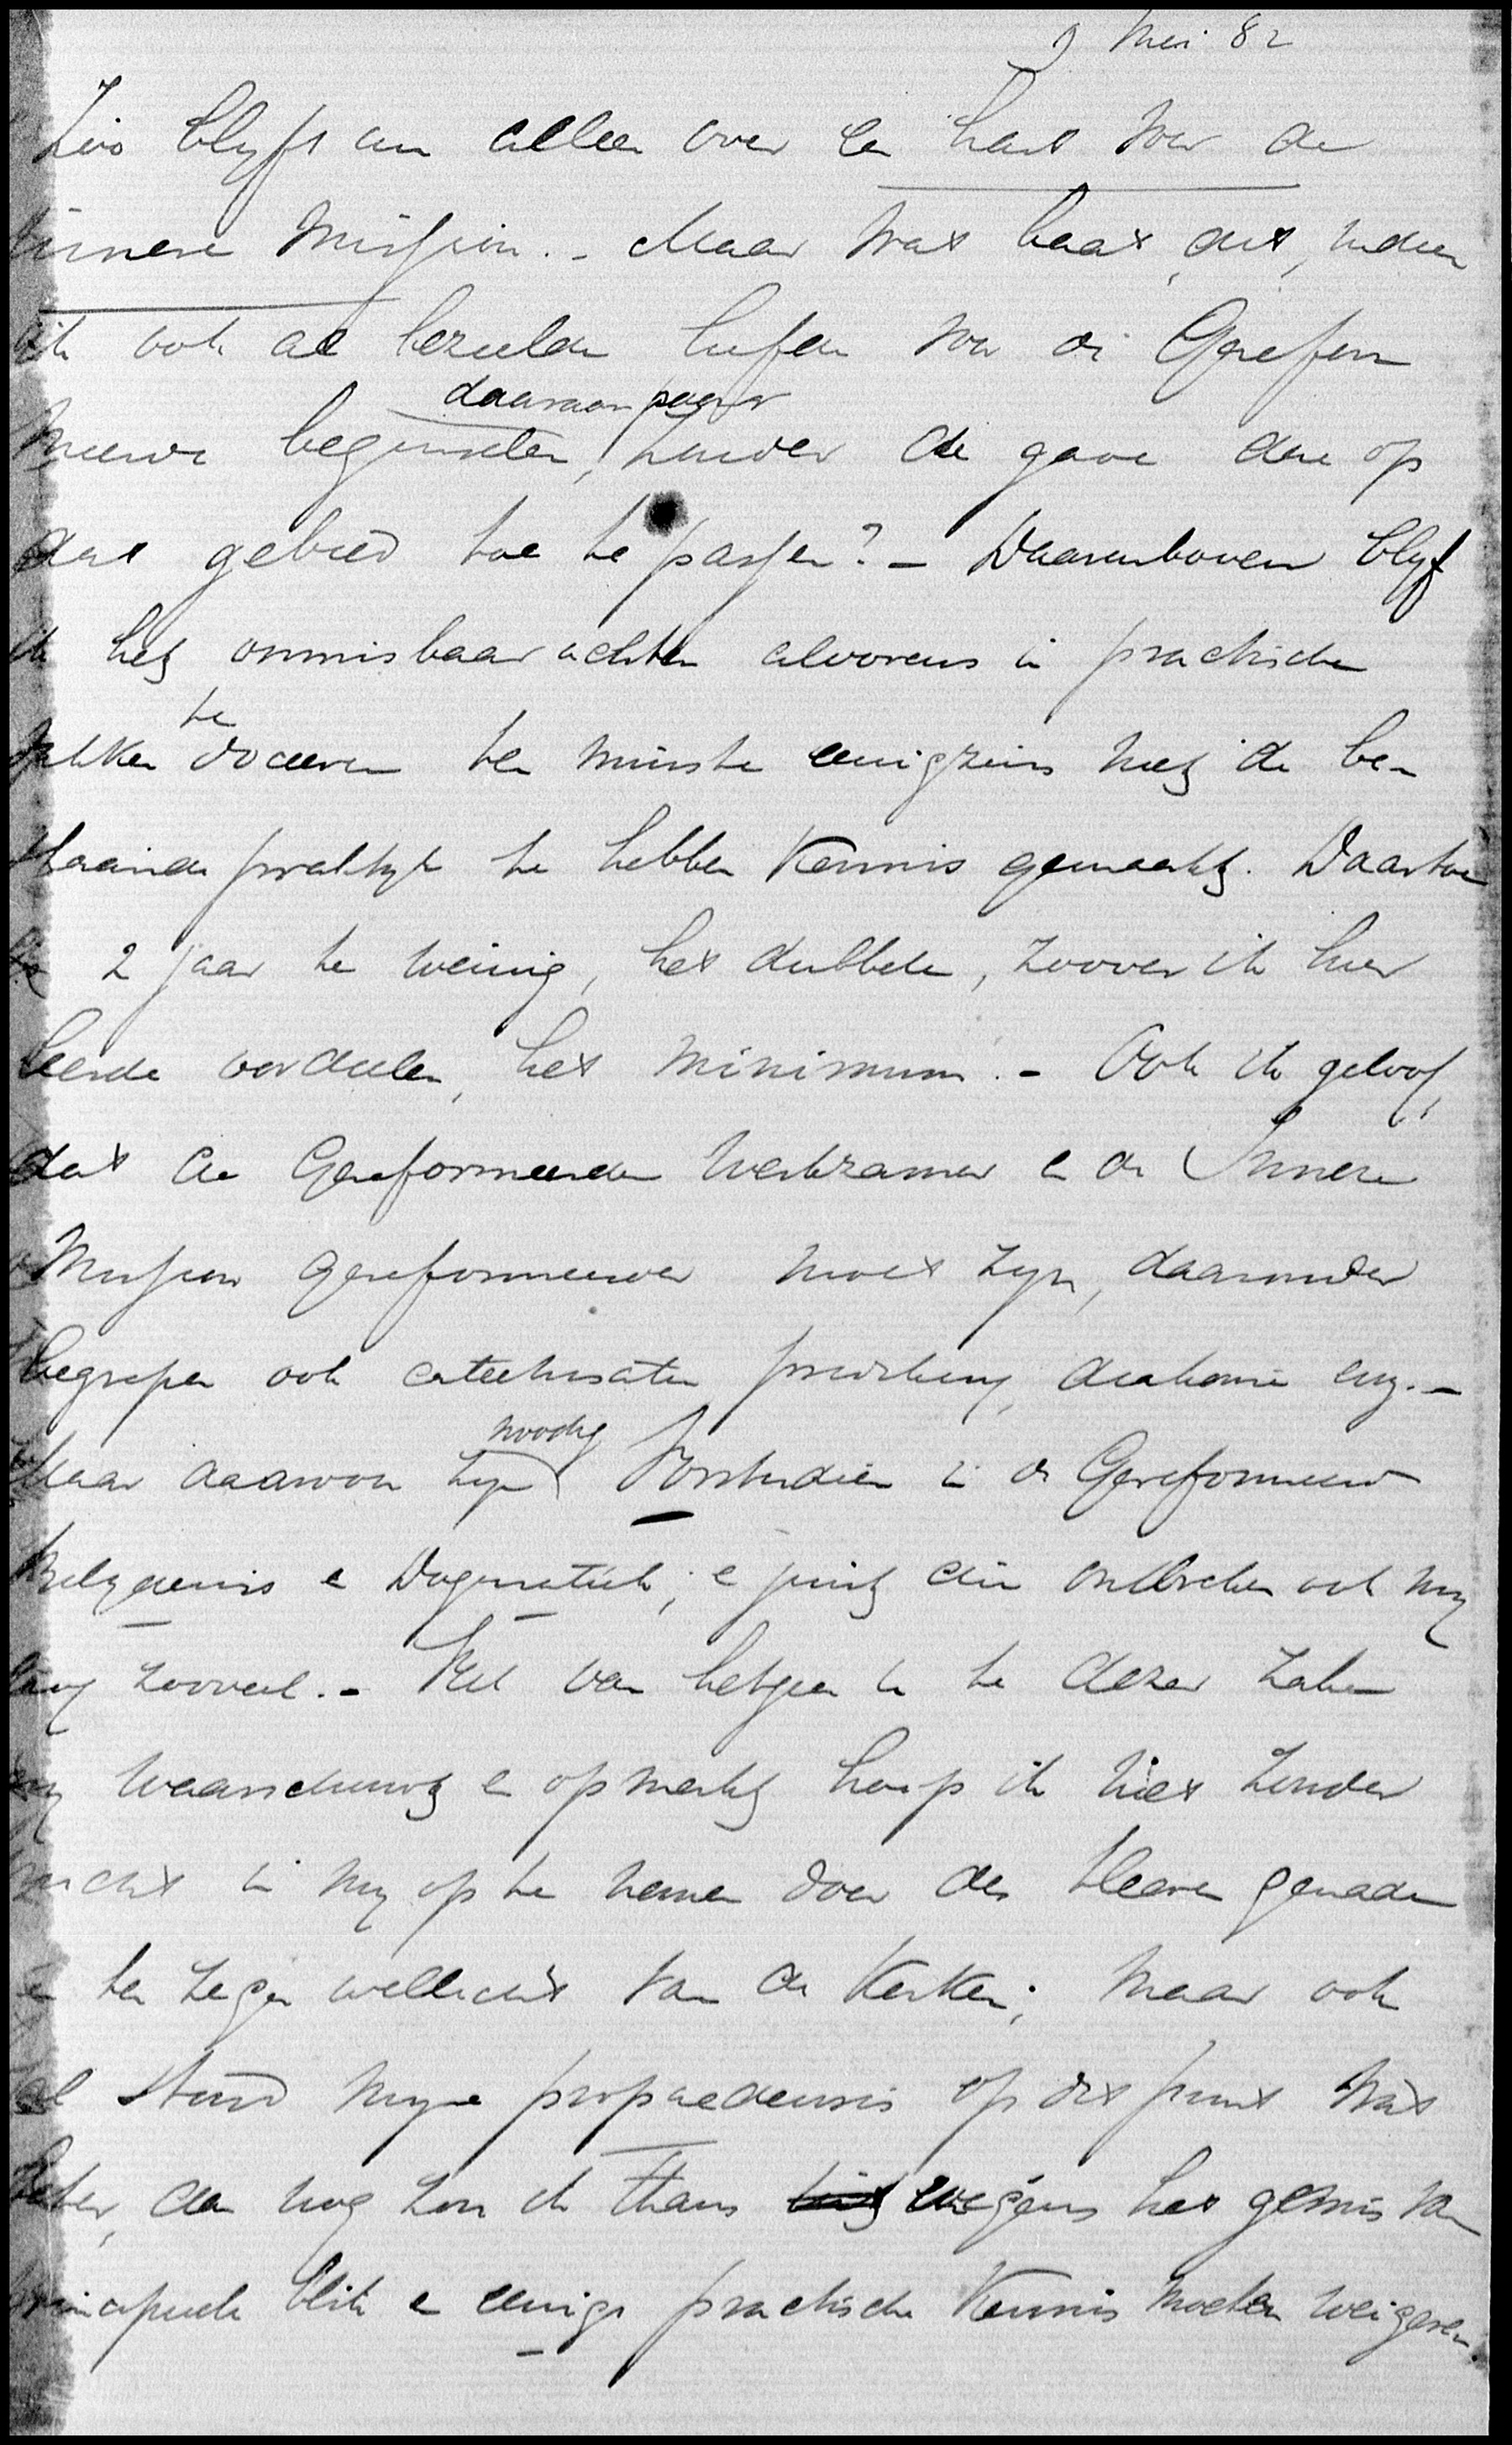 9 Mei 82
Zoo blyft mij alleen over een hart voor de
innere Mission. - Maar wat baat dit, indien
ik ook al bezielde liefde voor de Gerefor-
daaraan paar
meerde beginselen, zonder de gave die op
dat gebied toe te passen? - Daarenboven blyf
ik het onmisbaar achten alvorens in practische
te
vakken doceeren ten minste eenigzins met de be-
staande praktyk te hebben Kennis gemaakt. Daartoe
is 2 jaar te weinig, het dubbele, zoover ik hier
leerde oordeelen, het minimum. - Ook ik geloof,
dat de Gereformeerde werkzaamh in de Innere
Mission Gereformeerd moet zyn, daaronder
begrepen ook catechisatie prediking, diakonie enz. -
noodig
Maar daarvoor zyn Vorstudien in de Gereformeerde
Belydenis e Dogmatiek; e juist die ontbreken ook my
nog zooveel. - Veel van hetgeen U te dezer zake
my waarschuwt e opmerkt hoop ik niet zonder
vrucht in my op te nemen door des Heeren genade
e ten zegen wellicht van de Kerken; maar ook
al stond myne propaedeusis op dit punt wat
beter, dan nog zou ik thans wegens het gemis van
principieele blik e eenige practische Kennis moeten weigeren.